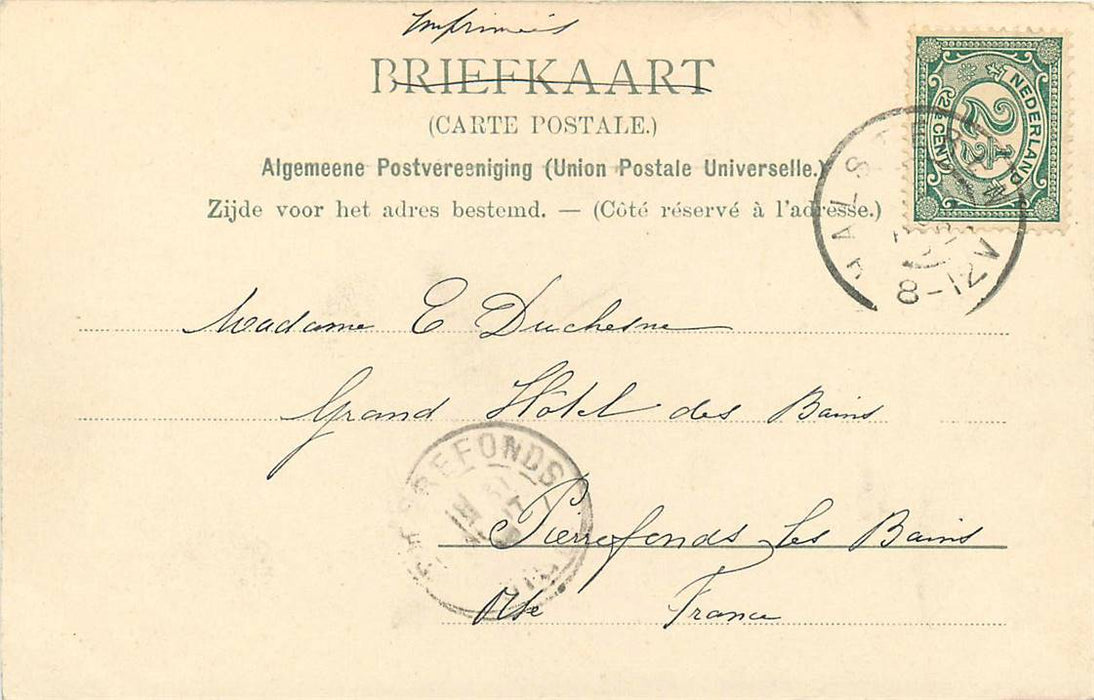 Imprimés
BRIEFKAART
(CARTE POSTALE.)
Algemeene Postvereeniging (Union Postale Universelle.)
Zijde voor het adres bestemd. — (Côté réservé à l'adresse.)
NEDERLAND
2½
2½ CENT
8-12 V
Madame E Duchesne
Grand Hôtel des Bains
Pierrefonds les Bains
Oise France
PIERREFONDS